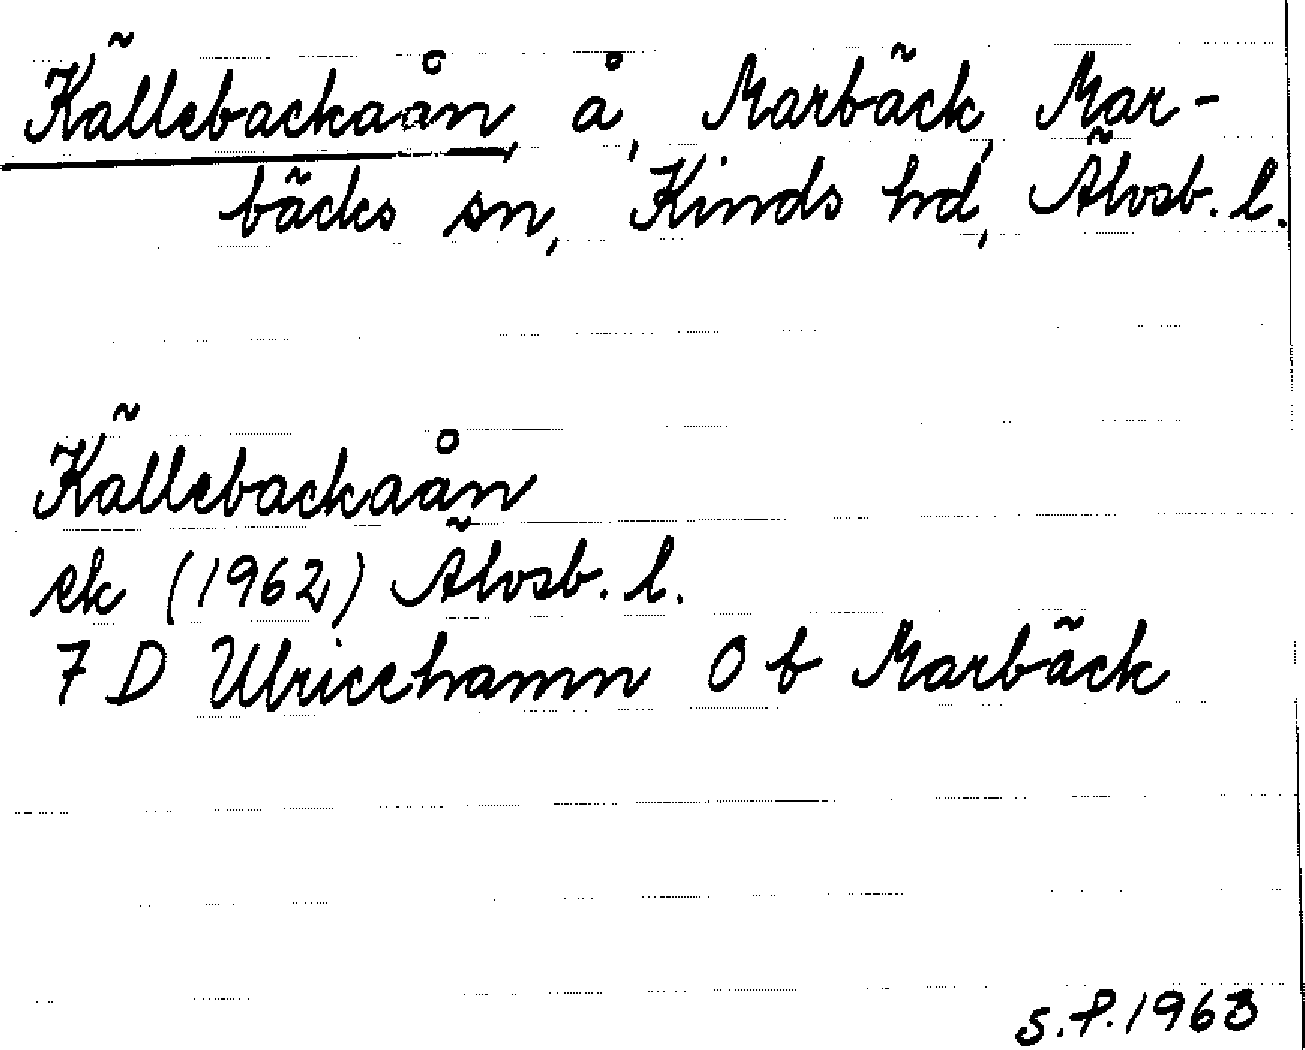 Källebackaån, å, Marbäck, Mar-
bäcks sn, Kinds hd, Älvsb. l.
Källebackaån
ek (1962) Älvsb. l.
7 D Ulricehamn 0 b Marbäck
S.P. 1963